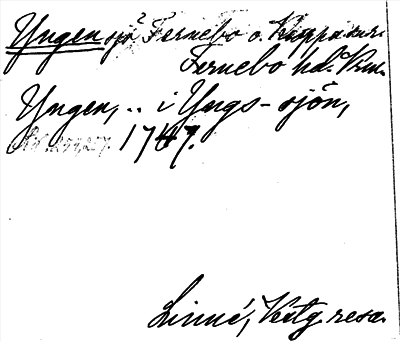 Yngen sjö? Fernebo o. Kroppa snr.
Fernebo hd. Vrm.
Yngen, .. i Yngs-sjön,
1747.
Linné, Vestg resa.